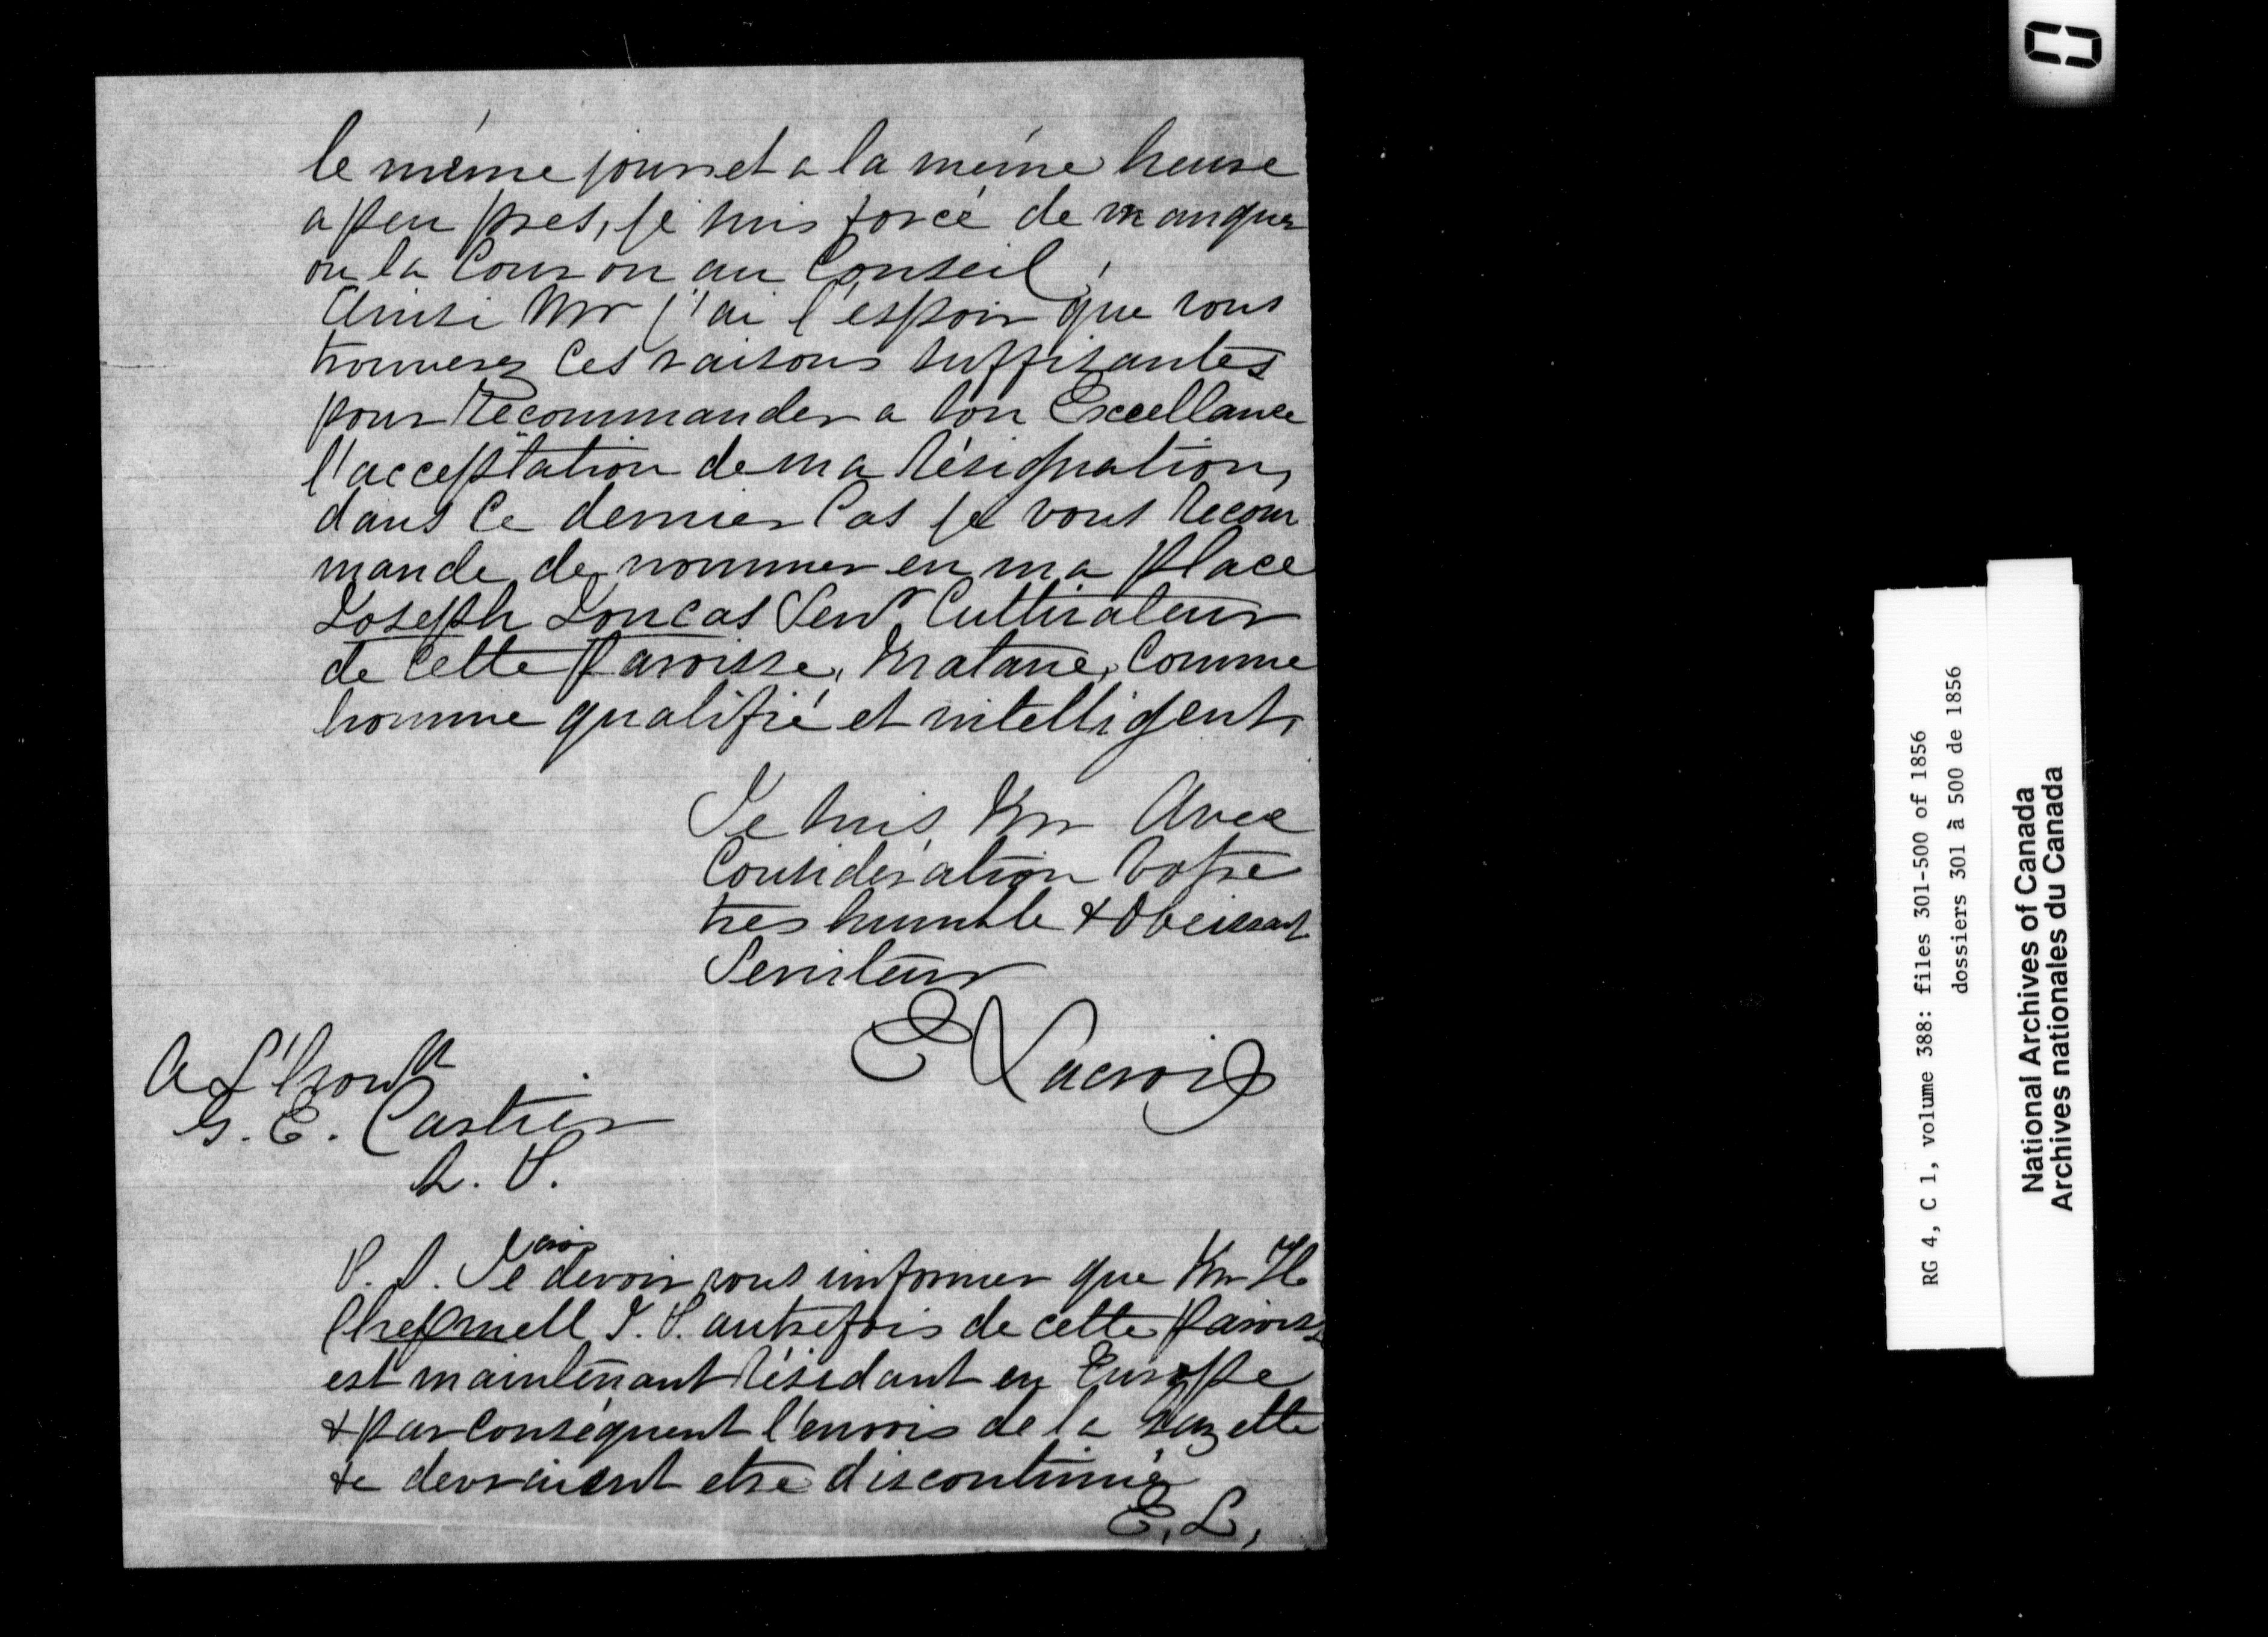 le même jour et a la même heure
a peu pres, je suis forcé de manquer
ou la Cour ou au Conseil,
Ainsi Mr j'ai l'espoir que vous
trouverez ces raisons suffisantes
pour Recommander a Son Excellance
l'acceptation de ma résignation,
dans ce dernier Cas je vous recom
mande de nommer en ma place
Joseph Loucas Senr Cultivateur
de cette Paroisse, Matane, Comme
homme qualifié et intelligent,
Je suis Mr Avec
Considération Votre
tres humble & Obeissant
Serviteur
E Lacroix
A L'honble
G. E. Cartier
S. P.
P. S. Je crois devoir vous informer que Mr H
Chepmell J. P. autrefois de cette Paroisse
est maintenant résidant en Europe
& par conséquent l'envois de la Gazette
&c devraient etre discontinué
E. L,
RG 4, C 1, volume 388: files 301-500 of 1856
dossiers 301 à 500 de 1856
National Archives of Canada
Archives nationales du Canada